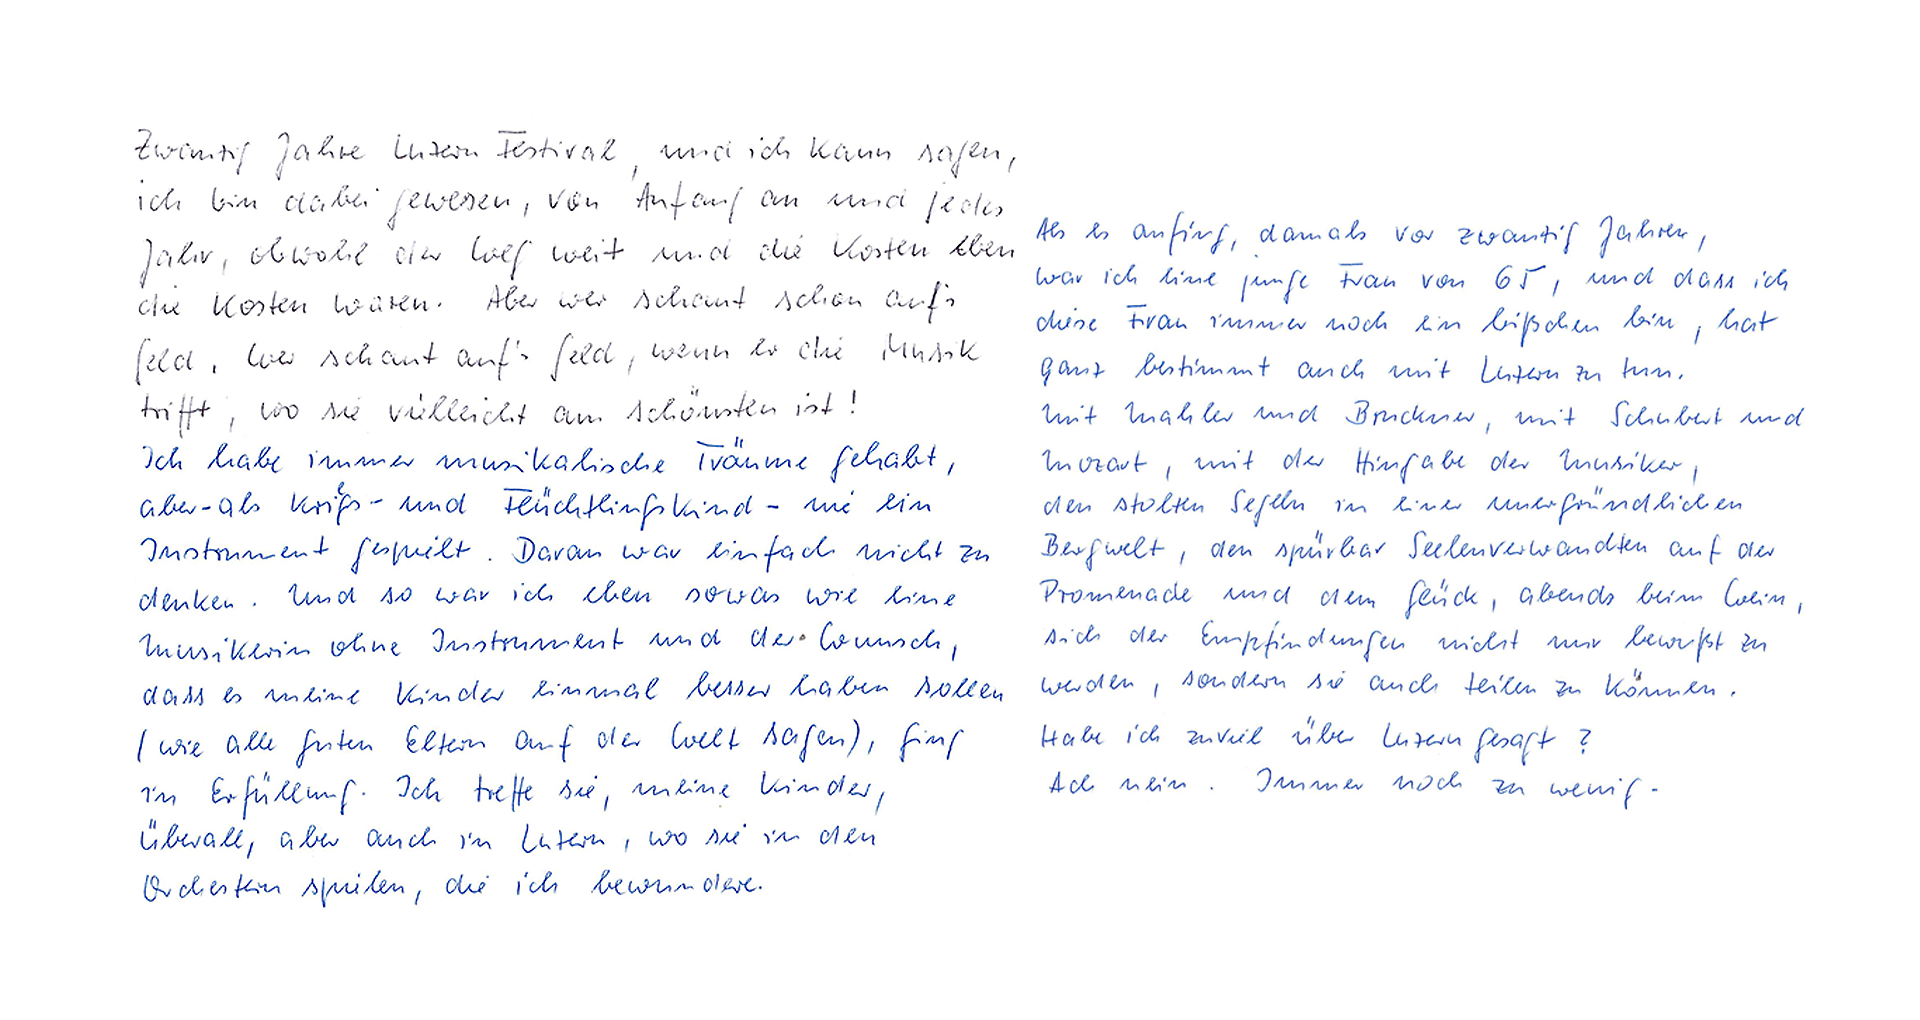 Zwanzig Jahre Luzern Festival, und ich kann sagen,
ich bin dabei gewesen, von Anfang an und jedes
Jahr, obwohl der Weg weit und die Kosten eben
die Kosten waren. Aber wer schaut schon auf's
Geld. Wer schaut auf's Geld, wenn er die Musik
trifft, wo sie vielleicht am schönsten ist!
Ich habe immer musikalische Träume gehabt,
aber - als Kriegs- und Flüchtlingskind - nie ein
Instrument gespielt. Daran war einfach nicht zu
denken. Und so war ich eben sowas wie eine
Musikerin ohne Instrument und der Wunsch,
dass es meine Kinder einmal besser haben sollen
(wie alle guten Eltern auf der Welt sagen), ging
in Erfüllung. Ich treffe sie, meine Kinder,
überall, aber auch in Luzern, wo sie in den
Orchestern spielen, die ich bewundere.
Als es anfing, damals vor zwanzig Jahren,
war ich eine junge Frau von 65, und dass ich
diese Frau immer noch ein bißchen bin, hat
ganz bestimmt auch mit Luzern zu tun.
Mit Mahler und Bruckner, mit Schubert und
Mozart, mit der Hingabe der Musiker,
den stolzen Segeln in einer unergründlichen
Bergwelt, den spürbar Seelenverwandten auf der
Promenade und dem Glück, abends beim Wein,
sich der Empfindungen nicht nur bewußt zu
werden, sondern sie auch teilen zu können.
Habe ich zuviel über Luzern gesagt?
Ach nein. Immer noch zu wenig.